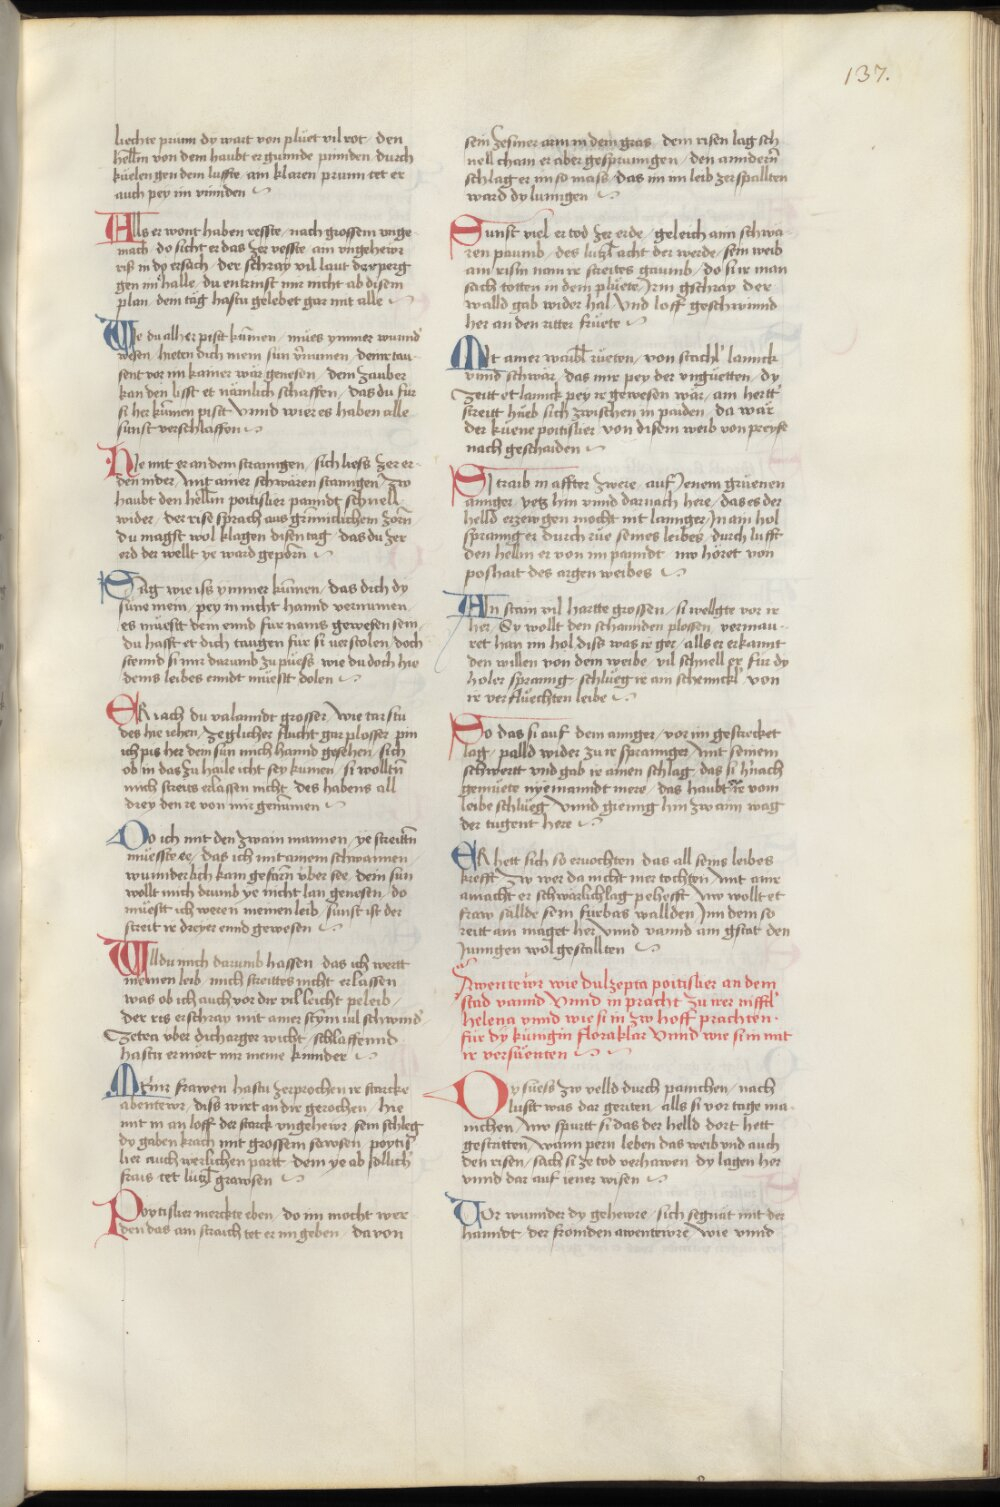 137.
liechte prunn dy wart von pluet vil rot / den
hellm von dem haubt er gunde pinnden / durch
küelen gen dem luffte / am klaren prunn tet er
auch pey im vinnden
Alls er wont haben resste / nach grossem unge-
mach / do sicht er das zer vesste / am ungehewr
ris in dy ersach / der schray vil laut
gen in halle / du entrinst mir nicht ab disem
plan / dem tag hastu gelebet gar mit alle
Wie du all her pist kumen / mues ymmer wunnd
wesen / hieten dich mein sün vernumen / dem tau-
sent vor im kainer wär genesen / dem zauber
kan den lisst et nämlich schaffen / das du für
si her kumen pistt / unnd wie es haben alle
sunst verschlaffen
Hie mit er an dem stranngen / sich liess zer er-
den nider / Mit ainer schwaren stanngen / zw
haubt den hellm poitislier panndt schnell
wider / der rise sprach aus grimiclichem zorn
du magst wol klagen disen tag / das du zer
erd der wellt ye ward geporn
Sag wie ists ymmer kumen / das dich dy
süne mein / pey in nicht hannd vernumen
es müestt dem ennd fur nams gewesen sein
du hasst et dich taugen für si verstolen / doch
stennd si mir darumb zu puess / wie du doch hie
deins leibes ennd muestt dolen
Er sach du valanndt grosser / wie tarstu
des hie iehen / zeglicher flucht gar plosser / pin
ich pis her dein sün mich hannd gesehen / sich
ob in das zu haile icht sey kumen / si wolltn
mich streits erlassen nicht / des habens all
drey den re von mir genumen
Do ich mit den zwain mannen / ye streittn
müesste ee / das ich mit ainem schwannen
wunnderlich kam gefarn über see / dein sün
wollt mich drumb ye nicht lan genesen / do
müestt ich weren meinen leib / sunst ist der
streit ir dreyer ennd gewesen
Willdu mich darumb hassen / das ich wertt
meinen leib / mich streittes nicht erlassen
was ob ich auch vor dir vil leicht peleib /
der ris erschray mit ainer stym vil schwind
Zetra über dich arger wicht / schlaffennd
hastu ermört mir meine kinnder
Mein frawen hastu zerprochen ir starcke
abentewr / diss wirt an dir gerochen / hie
mit in an loff der starck ungehewr / sein schleg
dy gaben krach mit grossem sawsen / poytis-
lier auch werlichen partt / dem ye ab sollich
frais tet lutzl grawsen
Poytislier merckte eben / do im mocht wer-
den das am straich tet er im geben / da von
sein zesmer arm in dem gras / dem risen lag sch
nell cham er aber gesprunngen / den annderen
schlag er im so mass / das im im leib zerspallten
ward dy lunngen
Sunst viel er tod zer erde / geleich ainn schwä
ren paumb / des lutzl acht der werde / sein weib
am risin nam ir streites gaumb / do si ir man
sach totten in dem pluete / Irm gschray der
walld gab wider hal / Und loff geschwinnd
her an den ritter fruete
Mit ainer waibl rueten / von stachl lannck
unnd schwär / das mir pey der unguetten / dy
Zeitt et lannck pey ir gewesen wär / am hertt
streitt hueb sich zwischen in paiden / da wär
der kuene poitislier von disem weib von preyse
nach geschaiden
Si traib in affter zwere / auf Jenem gruenen
annger / yetz hin unnd darnach here / das es der
helld erzewgen mocht nit lannger / In ain hol
spranng er durch rue seines leibes / durch lufft
den hellm er von im panndt / nw höret von
poshait des argen weibes
Ain stain vil hartte grossen / si wellgte vor ir
her / Sy wollt den schannden plossen / vermau-
ret han im hol / diss was ir ger / alls er erkannt
den willen von dem weibe / vil schnell er für dy
holer spranng / schlueg ir am schennckl von
ir verfluechten leibe
So das si auf dem annger / vor im gestrecket
lag / palld wider zu ir spranng er / mit seinem
schwertt unnd gab ir ainen schlag / das si hinach
gemuete nyemanndt mere / das haubt ir vom
leibe schlueg / Unnd gienng hin zw ainn wag
der tugent here
Er hett sich so ervochten / das all seins leibes
krefft / zw wer da nicht mer tochten / mit ainr
amacht er schwärlich lag pehefft / nw wollt et
fraw sällde sein fürbas wallden / Inn dem so
reitt ain maget her / unnd vannd am gstat den
Junngen wol gestallten
Awentewr wie dulzepta poitislier an dem
stad vannd / Unnd in pracht zu ir nifftl
helena unnd wie si in zw hoff prachten
für dy künigin floraklar Unnd wie si in mit
ir versüenten
Dy suess zw velld durch paincken / nach
lustt was dar geriten / alls si vor tage ma-
nichen / nw spurtt si das der helld dort hett
gestritten / wann pern leben das weib und auch
den risen / sach si ze tod verhawen / dy lagen her
unnd dar auf iener wisen
Vor wunnder dy gehewre / sich segnät mit der
hanndt / der frömden awentewre / wie unnd